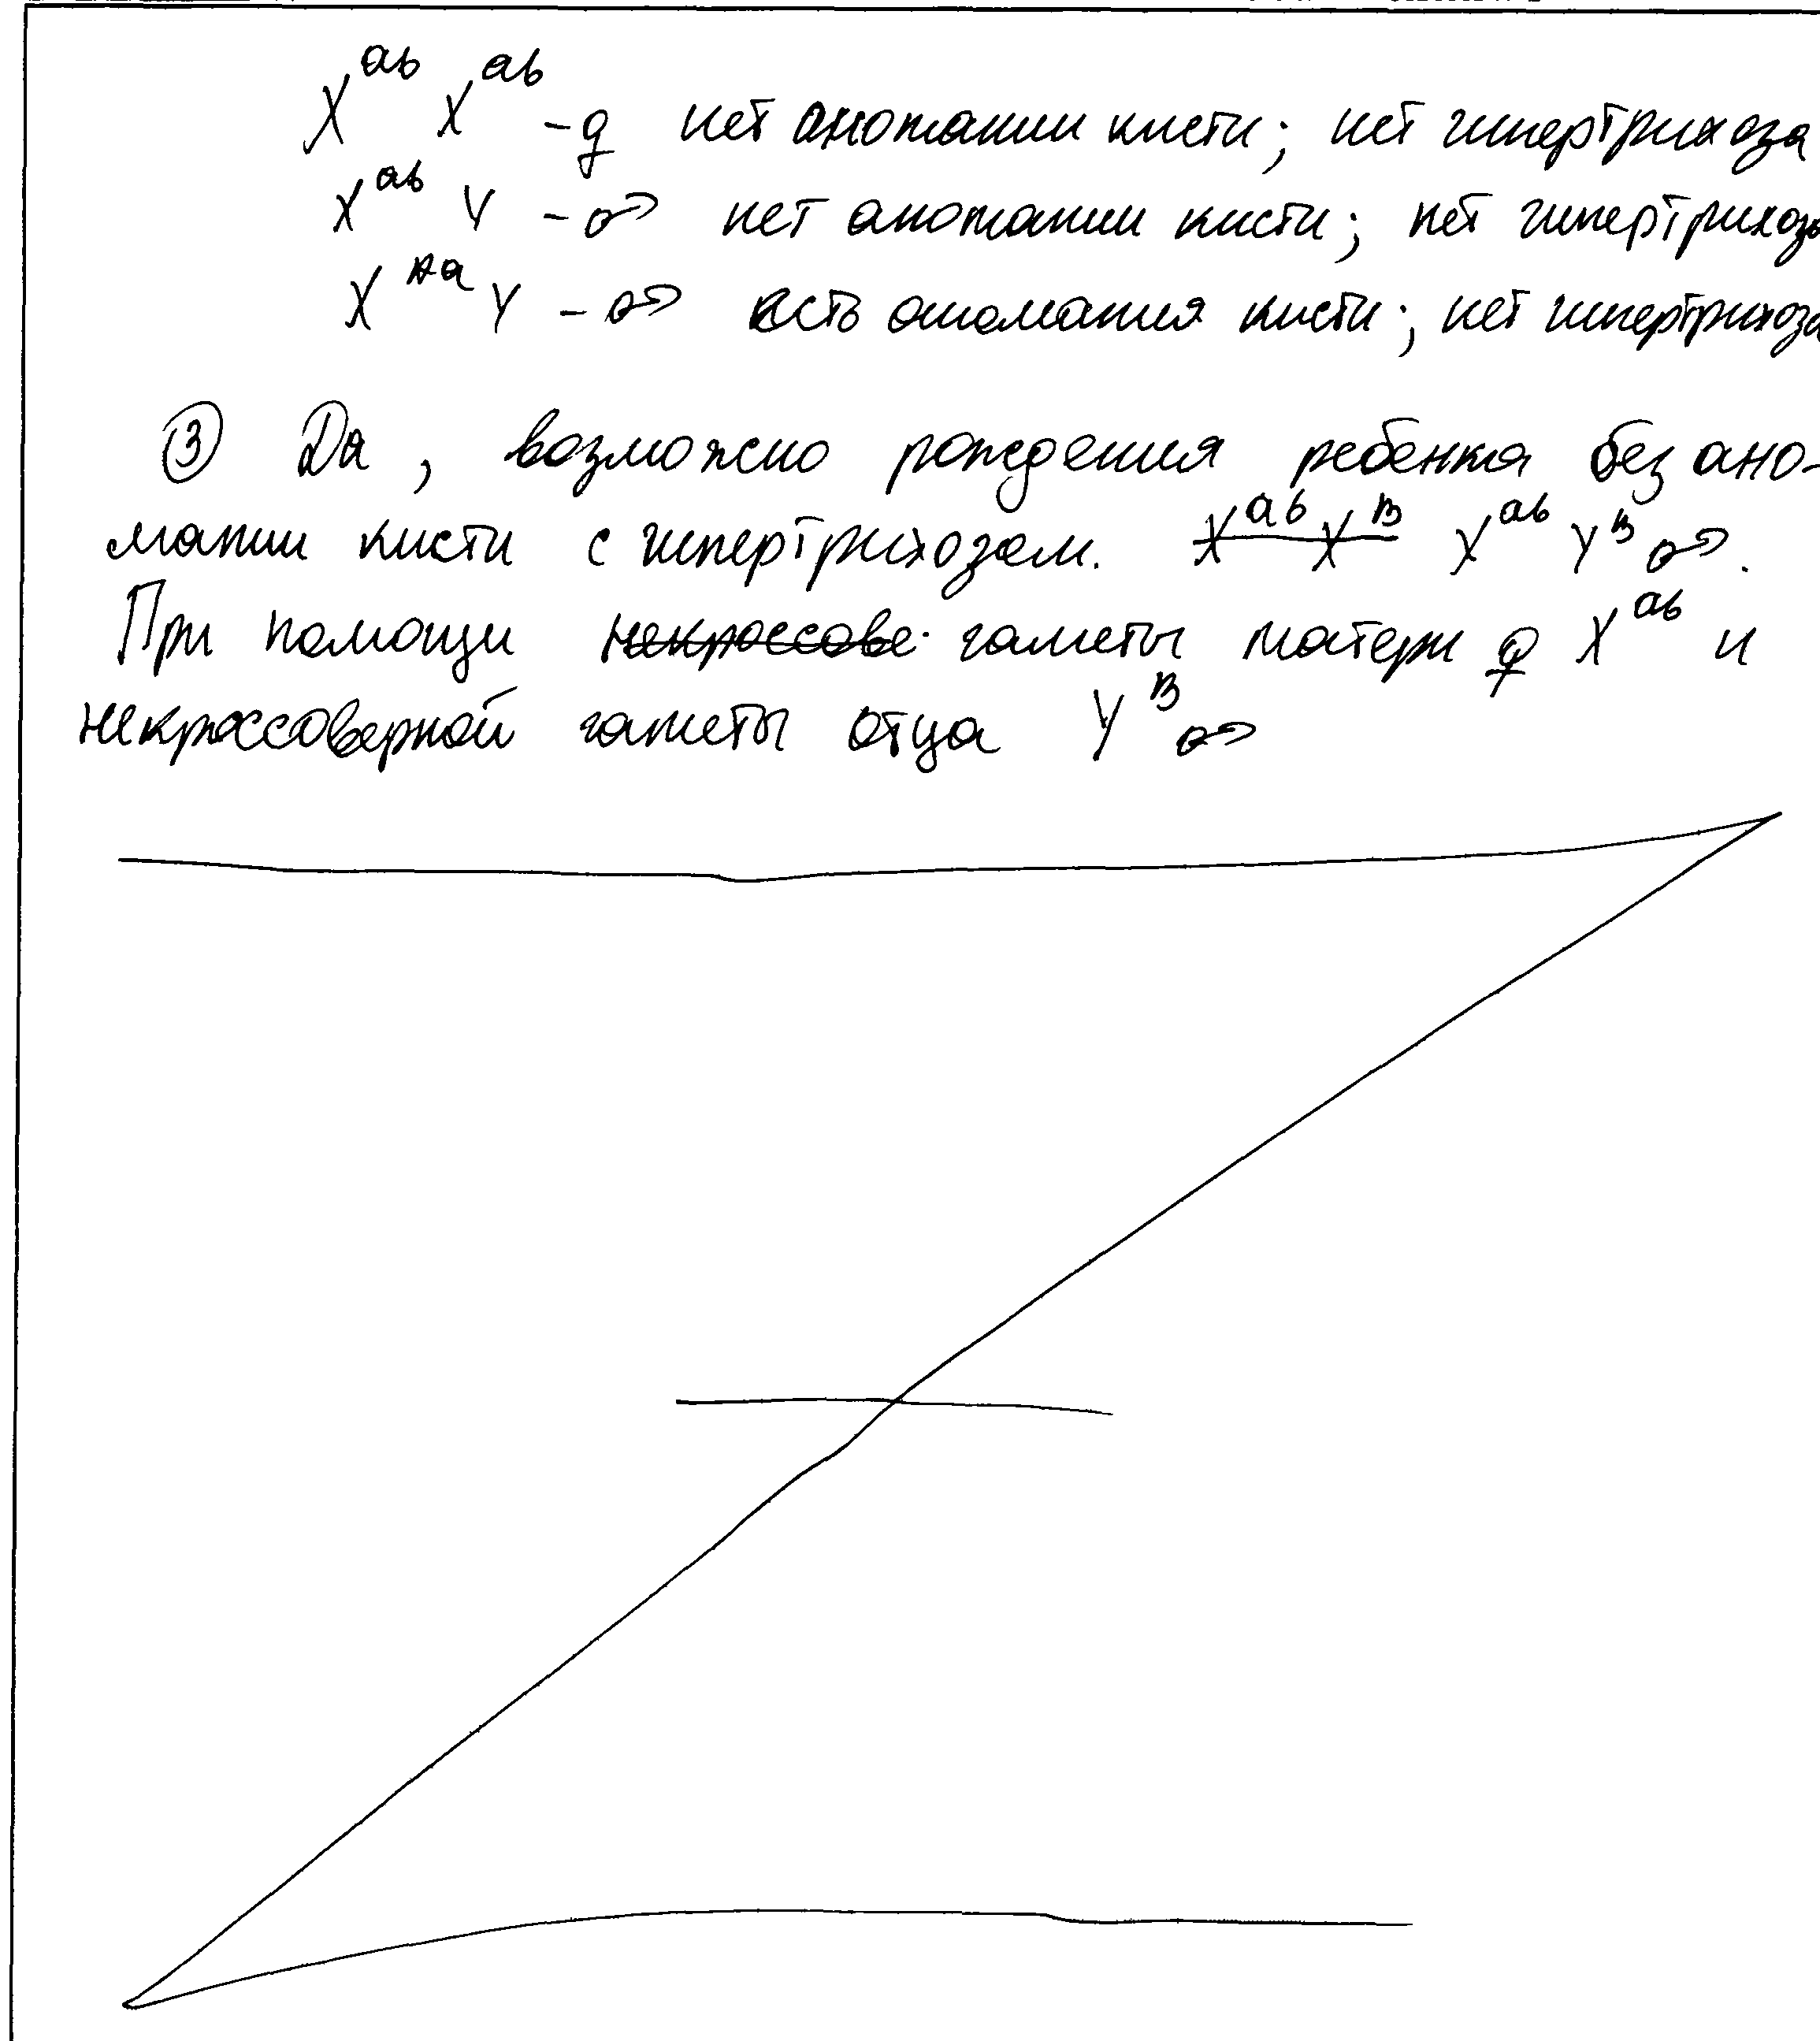 X^ab X^ab - ♀ нет аномалии кисти; нет гипертрихоза
X^ab Y - ♂ нет аномалии кисти; нет гипертрихоза
X^Aa Y - ♂ есть аномалия кисти; нет гипертрихоза
③ Да, возможно рождения ребенка без ано-
малии кисти с гипертрихозам. X^ab X^B X^ab Y^B ♂.
При помощи некроссове гаметы матери ♀ X^ab и
некроссоверной гаметы отца Y^B ♂